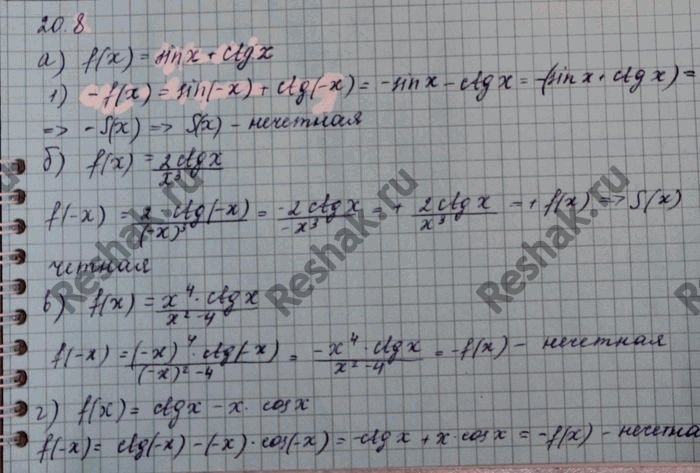 20.8.
а) f(x) = sin x + ctg x
1) -f(x) = sin(-x) + ctg(-x) = -sin x - ctg x = -(sin x + ctg x) =
=> -f(x) => f(x) - нечетная
б) f(x) = 2ctg x / x³
f(-x) = 2 · ctg(-x) / (-x)³ = -2ctg x / -x³ = + 2ctg x / x³ = + f(x) => f(x)
четная
в) f(x) = x⁴ · ctg x / x² - 4
f(-x) = (-x)⁴ · ctg(-x) / (-x)² - 4 = -x⁴ · ctg x / x² - 4 = -f(x) - нечетная
г) f(x) = ctg x - x · cos x
f(-x) = ctg(-x) - (-x) · cos(-x) = -ctg x + x · cos x = -f(x) - нечетна
Reshak.ru
Reshak.ru
Reshak.ru